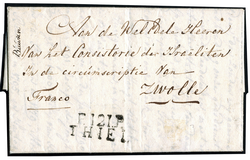 Aan de WelEdele Heeren
Van het Consistorie der Israëliten
In de circumscriptie Van
Zwolle
Franco
P121P
THIEL